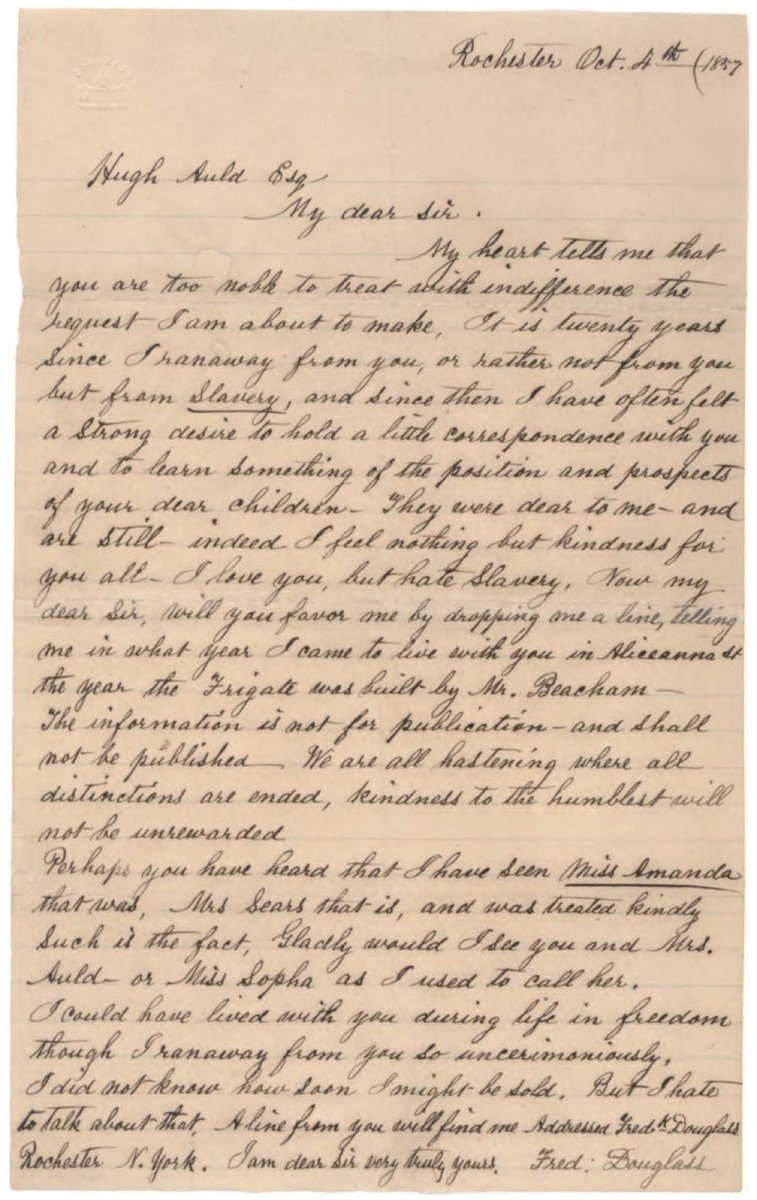 Rochester Oct. 4th (1857
Hugh Auld Esq
My dear sir.
My heart tells me that
you are too noble to treat with indifference the
request I am about to make, It is twenty years
since I ranaway from you, or rather not from you
but from Slavery, and since then I have often felt
a strong desire to hold a little correspondence with you
and to learn something of the position and prospects
of your dear children – They were dear to me – and
are still – indeed I feel nothing but kindness for
you all – I love you, but hate Slavery. Now my
dear Sir, will you favor me by dropping me a line, telling
me in what year I came to live with you in Aliceanna st
the year the Frigate was built by Mr. Beacham –
The information is not for publication – and shall
not be published – We are all hastening where all
distinctions are ended, kindness to the humblest will
not be unrewarded
Perhaps you have heard that I have seen Miss Amanda
that was, Mrs Sears that is, and was treated kindly
Such is the fact, Gladly would I see you and Mrs.
Auld – or Miss Sopha as I used to call her.
I could have lived with you during life in freedom
though I ranaway from you so uncerimoniously,
I did not know how soon I might be sold. But I hate
to talk about that. A line from you will find me Addressed Fredk Douglass
Rochester N. York. I am dear sir very truly yours. Fred: Douglass